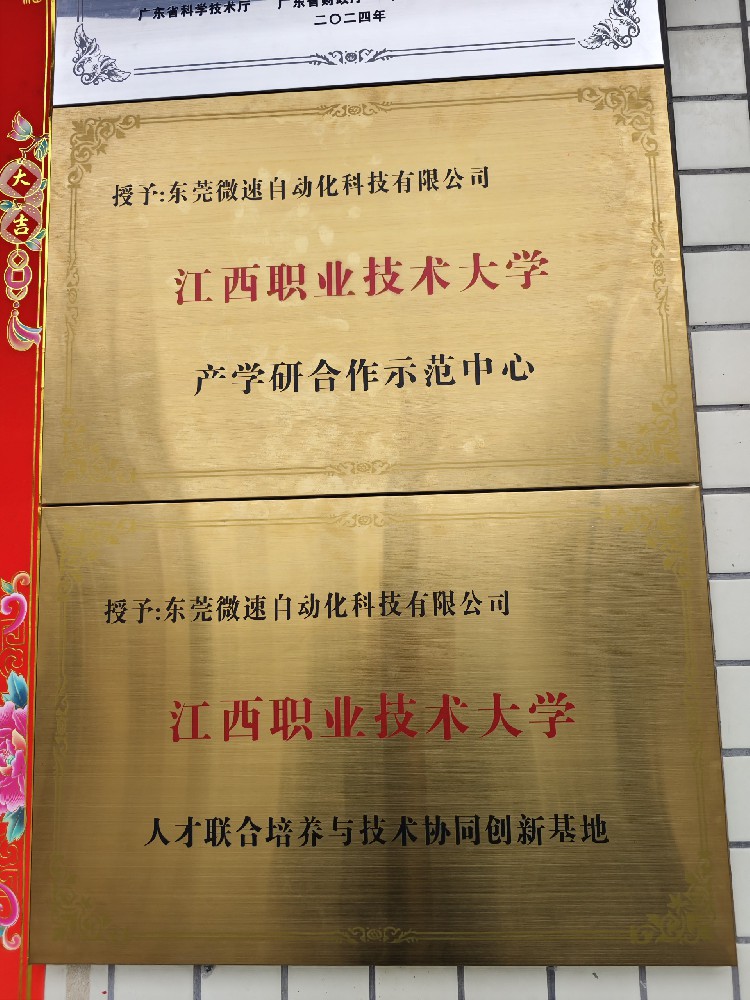 广东省科学技术厅 广东省财政厅
二〇二四年
授予:东莞微速自动化科技有限公司
江西职业技术大学
产学研合作示范中心
授予:东莞微速自动化科技有限公司
江西职业技术大学
人才联合培养与技术协同创新基地
大
吉